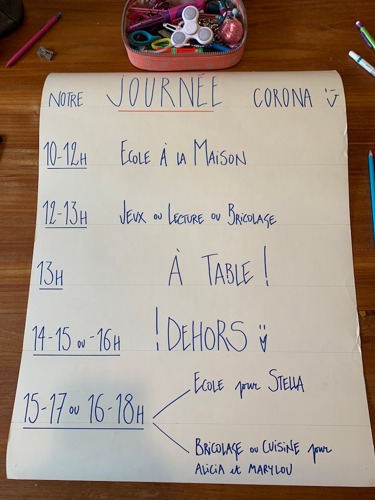 NOTRE JOURNÉE CORONA
10-12H ECOLE À LA MAISON
12-13H JEUX OU LECTURE OU BRICOLAGE
13H À TABLE !
14-15 OU -16H ! DEHORS
15-17 OU 16-18H
ECOLE pour STELLA
BRICOLAGE OU CUISINE pour
ALICIA et MARYLOU